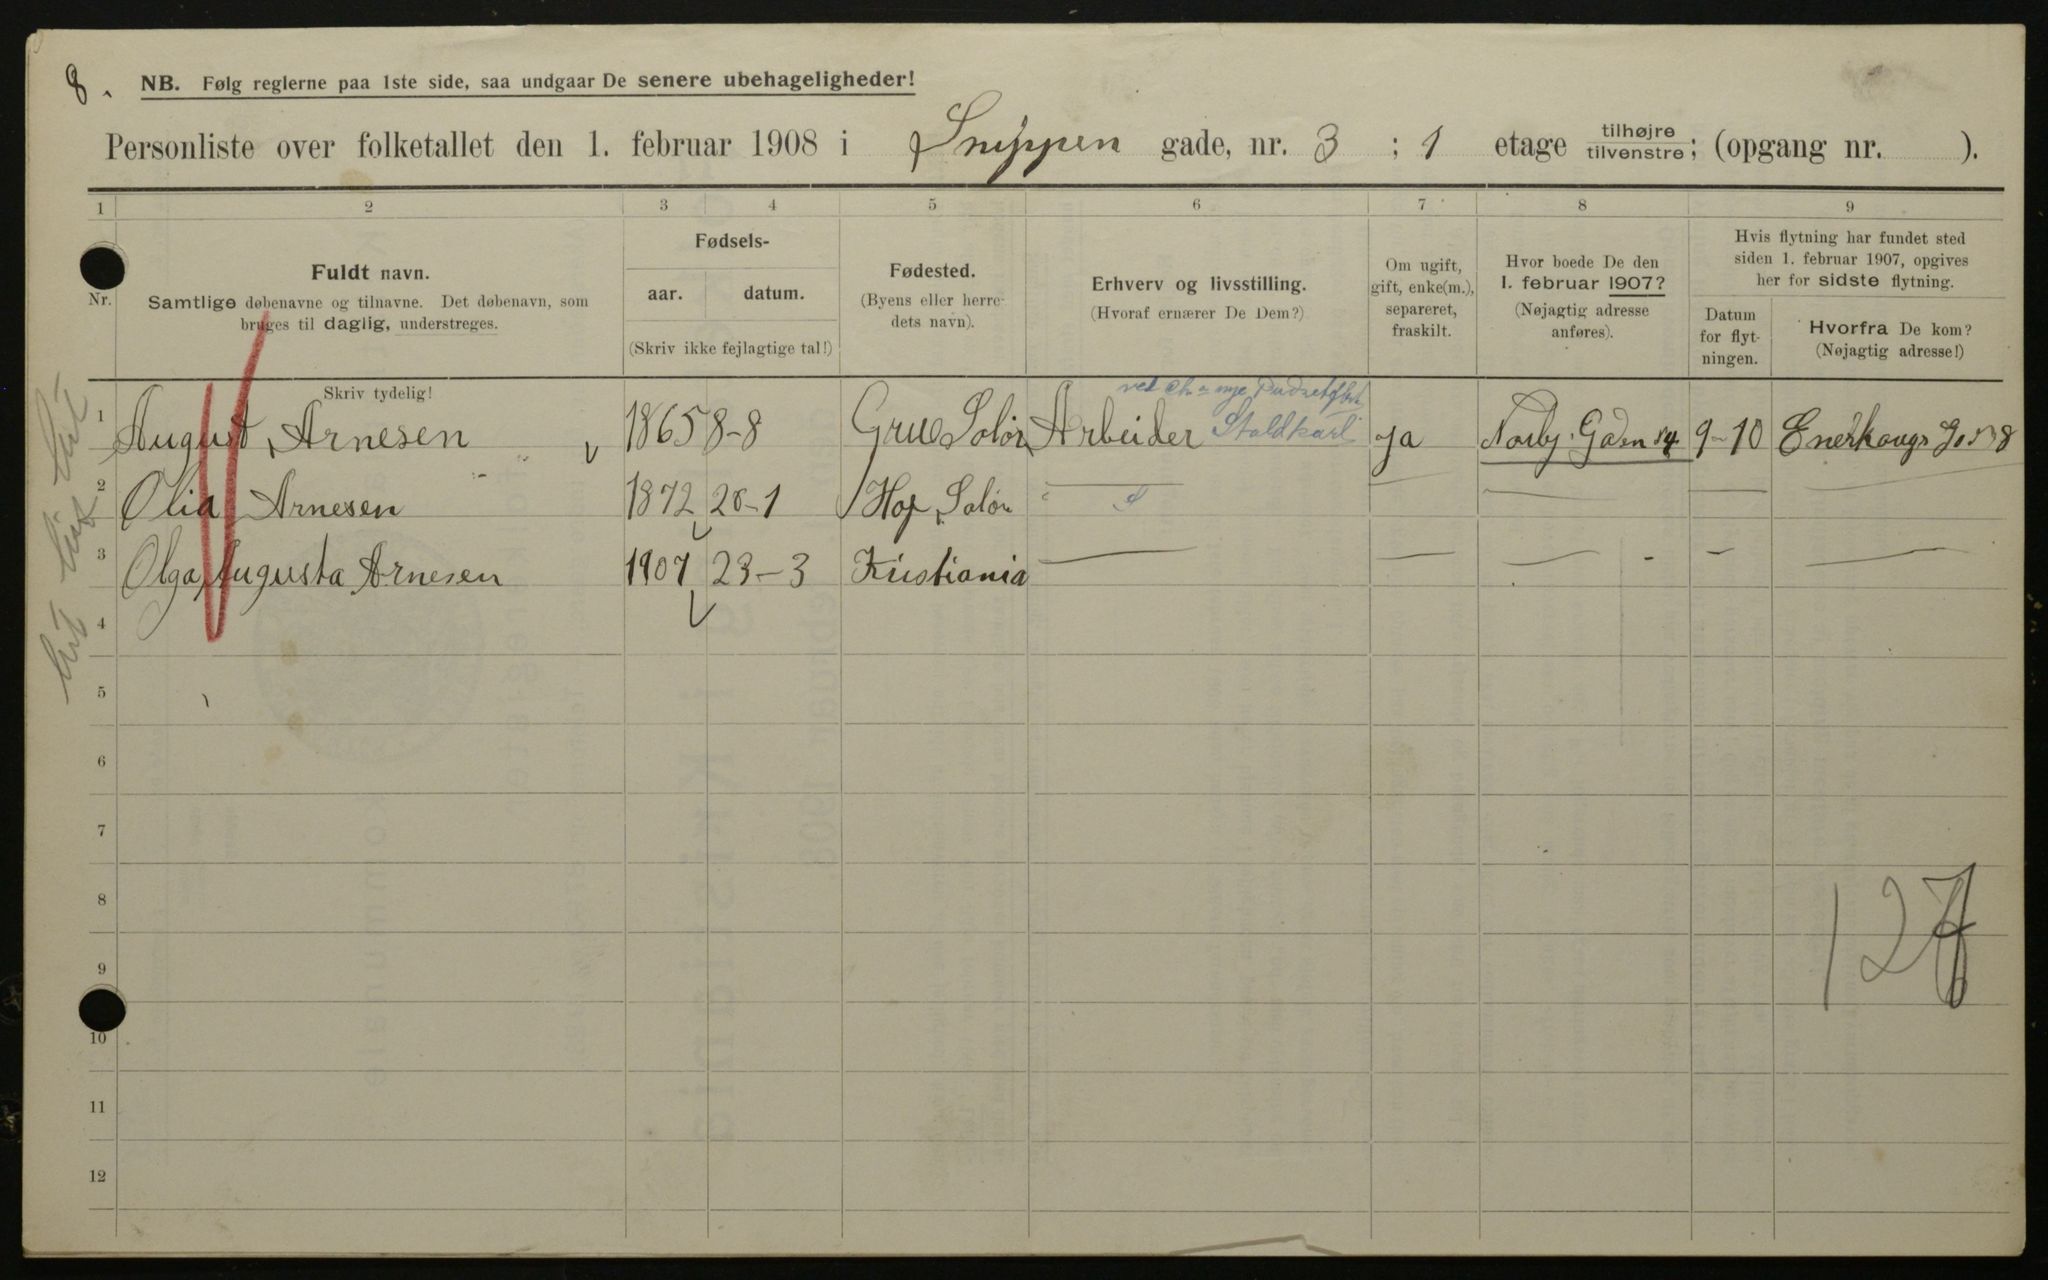 8.
NB. Følg reglerne paa 1ste side, saa undgaar De senere ubehageligheder!
Personliste over folketallet den 1. februar 1908 i Snippen gade, nr. 3 ; 1 etage tilhøjre tilvenstre; (opgang nr. ).
1 2 3 4 5 6 7 8 9
Nr.
Fuldt navn.
Samtlige døbenavne og tilnavne. Det døbenavn, som
bruges til daglig, understreges.
Skriv tydelig!
Fødsels-
aar. datum.
(Skriv ikke fejlagtige tal!)
Fødested.
(Byens eller herre-
dets navn).
Erhverv og livsstilling.
(Hvoraf ernærer De Dem?)
Om ugift,
gift, enke(m.),
separeret,
fraskilt.
Hvor boede De den
1. februar 1907?
(Nøjagtig adresse
anføres).
Hvis flytning har fundet sted
siden 1. februar 1907, opgives
her for sidste flytning.
Datum
for flyt-
ningen.
Hvorfra De kom?
(Nøjagtig adresse!)
1 August Arnesen 1865 8-8 Grue Solør Arbeider Staldkarl ja Norby Gaden 54 9-10
2 Olia Arnesen 1872 20-1 Hof Solør
3 Olga Augusta Arnesen 1907 23-3 Kristiania
4
5
6
7
8
9
10
11
12
127